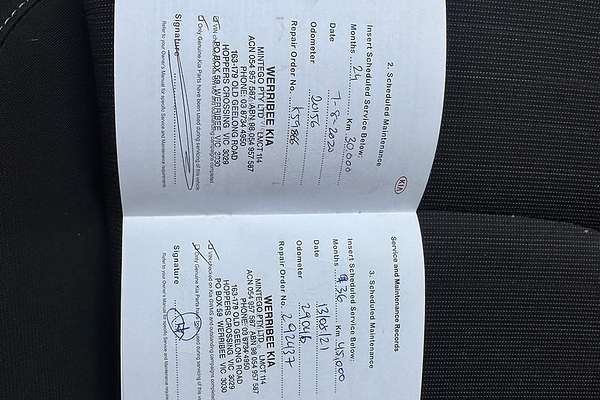 2. Scheduled Maintenance
Insert Scheduled Service Below;
Months 24 Km 30,000
Date 7-8-2020
Odometer 20156
Repair Order No.
WERRIBEE KIA
MINTEGO PTY LTD LMCT 114
ACN 054 957 587 ABN 98 054 957 587
163-179 OLD GEELONG ROAD
HOPPERS CROSSING VIC 3029
PHONE: 03 8734 4950
PO BOX 59 WERRIBEE VIC 3030
Only Genuine Kia Parts have been used during servicing of this vehicle
Signature
Refer to your Owner's Manual for specific Service and Maintenance requirements
KIA
Service and Maintenance Records
3. Scheduled Maintenance
Insert Scheduled Service Below;
Months 36 Km 45,000
Date 13/05/21
Odometer 29046
Repair Order No. 292437
WERRIBEE KIA
MINTEGO PTY LTD LMCT 114
ACN 054 957 587 ABN 98 054 957 587
163-179 OLD GEELONG ROAD
HOPPERS CROSSING VIC 3029
PHONE: 03 8734 4950
PO BOX 59 WERRIBEE VIC 3030
VIN checked on Kia GWMS and outstanding campaigns completed
Only Genuine Kia Parts have been used during servicing of this vehicle
Signature
Refer to your Owner's Manual for specific Service and Maintenance requirements